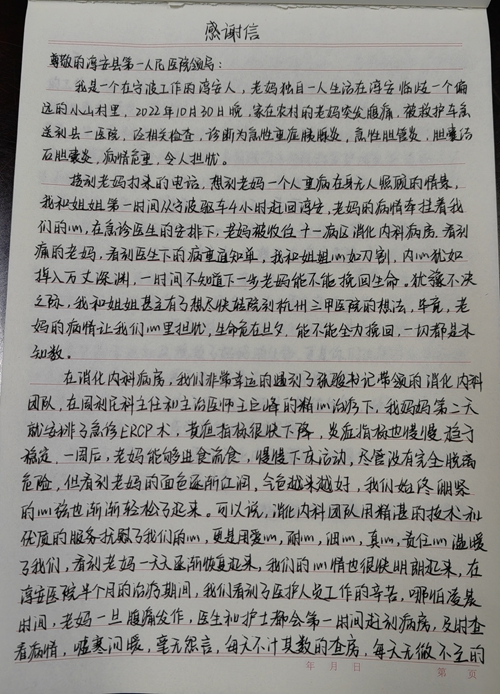 感谢信
尊敬的淳安县第一人民医院领导：
我是一个在宁波工作的淳安人，老妈独自一人生活在淳安临岐一个偏
远的小山村里，2022年10月30日晚，家在农村的老妈突发腹痛，被救护车急
送到县一医院，经相关检查，诊断为急性重症胰腺炎，急性胆管炎，胆囊结
石胆囊炎，病情危重，令人担忧。
接到老妈打来的电话，想到老妈一个人重病在身无人照顾的情景，
我和姐姐第一时间从宁波驱车4小时赶回淳安，老妈的病情牵挂着我
们的心，在急诊医生的安排下，老妈被收住十一病区消化内科病房，看到
痛的老妈，看到医生下的病重通知单，我和姐姐心如刀割，内心犹如
掉入万丈深渊，一时间不知道下一步老妈能不能挽回生命。犹豫不决
之际，我和姐姐甚至有了想尽快转院到杭州三甲医院的想法，毕竟，老
妈的病情让我们心里担忧，生命危在旦夕，能不能全力挽回，一切都是未
知数。
在消化内科病房，我们非常幸运的遇到了张骏书记带领的消化内科
团队，在周利民科主任和主治医师王巨峰的精心治疗下，我妈妈第二天
就安排了急诊ERCP术，黄疸指标很快下降，炎症指标也慢慢趋于
稳定，一周后，老妈能够进食流食，慢慢下床活动，尽管没有完全脱离
危险，但看到老妈的面色逐渐红润，气色越来越好，我们始终绷紧
的心弦也渐渐轻松了起来。可以说，消化内科团队用精湛的技术和
优质的服务抚慰了我们的心，更是用爱心，耐心，细心，真心，责任心温暖
了我们，看到老妈一天天逐渐恢复起来，我们的心情也很快明朗起来，在
淳安医院半个月的治疗期间，我们看到了医护人员工作的辛苦，哪怕凌晨
时间，老妈一旦腹痛发作，医生和护士都会第一时间赶到病房，及时查
看病情，嘘寒问暖，毫无怨言，每天不计其数的查房，每天无微不至的
年 月 日
第 页